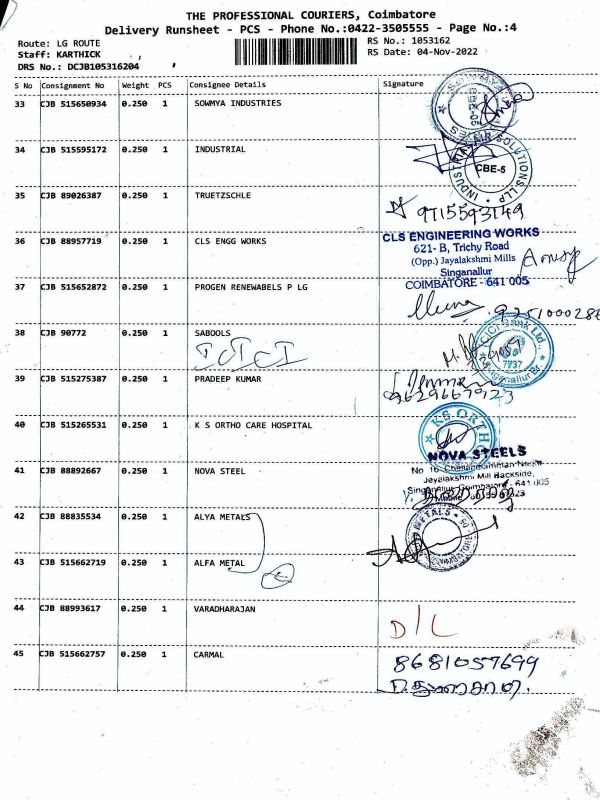 THE PROFESSIONAL COURIERS, Coimbatore
Delivery Runsheet - PCS - Phone No.:0422-3505555 - Page No.:4
Route: LG ROUTE
RS No.: 1053162
Staff: KARTHICK
RS Date: 04-Nov-2022
DRS No.: DCJB105316204
S No Consignment No Weight PCS Consignee Details Signature
33 CJB 515650934 0.250 1 SOWMYA INDUSTRIES
34 CJB 515595172 0.250 1 INDUSTRIAL
SOLUTIONS LLP
CBE-5
35 CJB 89026387 0.250 1 TRUETZSCHLE
9715593149
36 CJB 88957719 0.250 1 CLS ENGG WORKS
CLS ENGINEERING WORKS
621- B, Trichy Road
(Opp.) Jayalakshmi Mills
Singanallur
COIMBATORE - 641 005
37 CJB 515652872 0.250 1 PROGEN RENEWABELS P LG
38 CJB 90772 0.250 1 SABOOLS
ICICI
ICICI Bank Ltd.
Singanallur Br.
39 CJB 515275387 0.250 1 PRADEEP KUMAR
9629667923
40 CJB 515265531 0.250 1 K S ORTHO CARE HOSPITAL
KS ORTHO
41 CJB 88892667 0.250 1 NOVA STEEL
NOVA STEELS
Jeyalakshmi Mill Backside,
42 CJB 88835534 0.250 1 ALYA METALS
METALS
43 CJB 515662719 0.250 1 ALFA METAL
44 CJB 88993617 0.250 1 VARADHARAJAN
D/L
45 CJB 515662757 0.250 1 CARMAL
8681057699